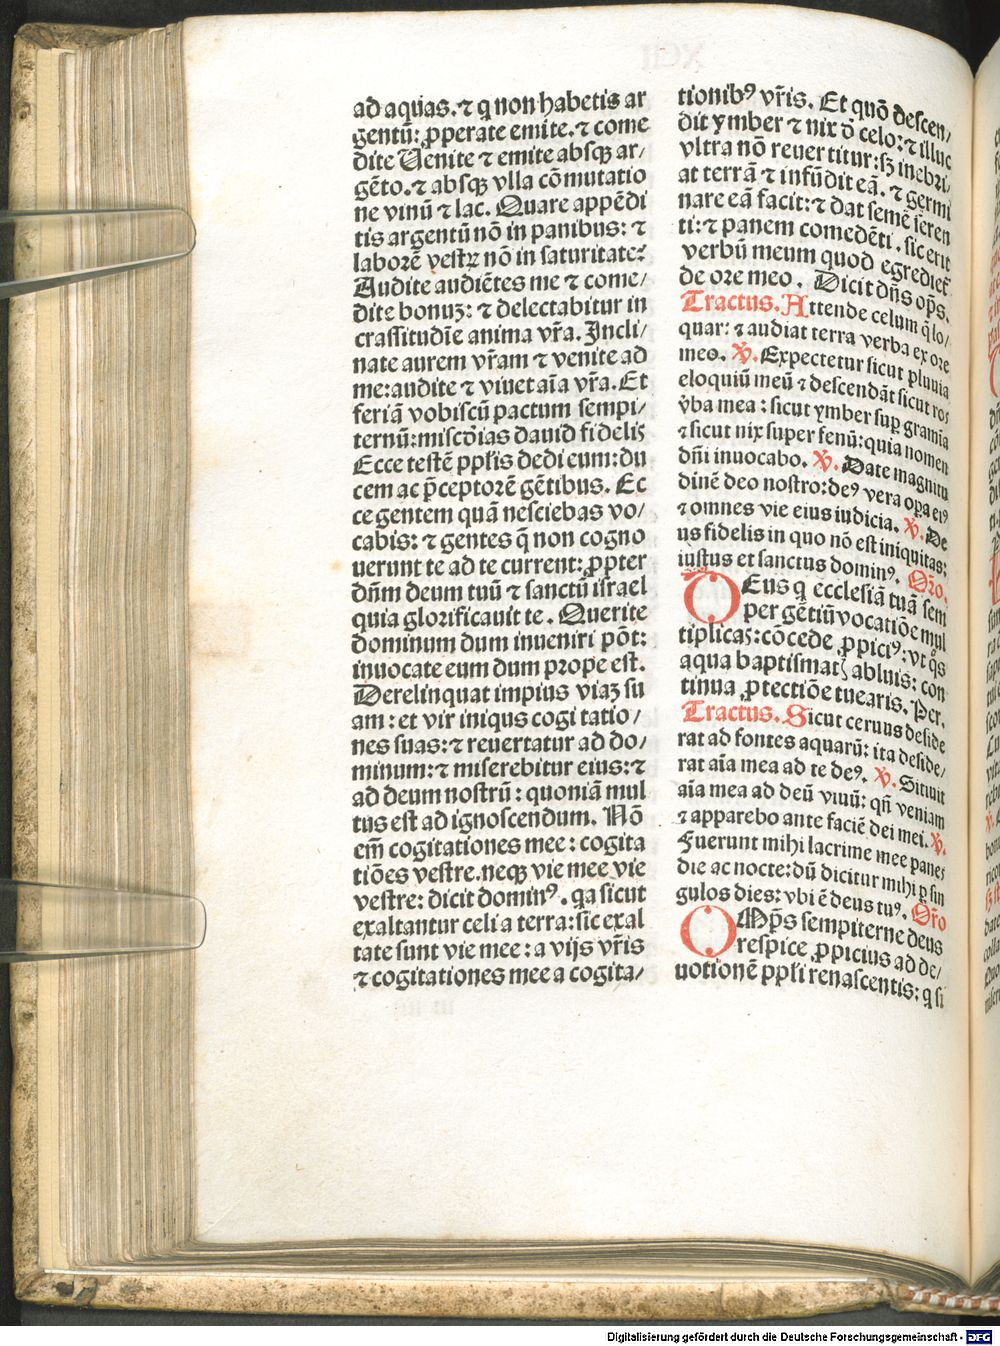 ad aquas. ⁊ q non habetis ar
gentū: ꝓperate emite. ⁊ come
dite Uenite ⁊ emite absqꝫ ar/
gēto. ⁊ absqꝫ vlla cōmutatio
ne vinū ⁊ lac. Quare appēdi
tis argentū nō in panibus: ⁊
laborē vestrꝫ nō in saturitate?
Audite audiētes me ⁊ come/
dite bonuꝫ: ⁊ delectabitur in
crassitudīe anima vr̄a. Incli/
nate aurem vr̄am ⁊ venite ad
me: audite ⁊ viuet aīa vr̄a. Et
feriā vobiscū pactum sempi/
ternū: miscōias dauid fidelis
Ecce testē pplis dedi eum: du
cem ac p̄ceptorē gētibus. Ec
ce gentem quā nesciebas vo/
cabis: ⁊ gentes q̄ non cogno
uerunt te ad te current: ꝓpter
dn̄m deum tuū ⁊ sanctū israel
quia glorificauit te. Querite
dominum dum inueniri pōt:
inuocate eum dum prope est.
Derelinquat impius viaꝫ su
am: et vir iniqus cogitatio/
nes suas: ⁊ reuertatur ad do/
minum: ⁊ miserebitur eius: ⁊
ad deum nostrū: quoniā mul
tus est ad ignoscendum. Nō
em̄ cogitationes mee: cogita
tiōes vestre. neqꝫ vie mee vie
vestre: dicit dominꝰ. qa sicut
exaltantur celi a terra: sic exal
tate sunt vie mee: a vijs vr̄is
⁊ cogitationes mee a cogita/
tionibꝰ vr̄is. Et quō descen/
dit ymber ⁊ nix d̄ celo: ⁊ illuc
vltra nō reuertitur: sꝫ inebri/
at terrā ⁊ infūdit eā. ⁊ germi
nare eā facit: ⁊ dat semē seren
ti: ⁊ panem comedēti. sic erit
verbū meum quod egredieť
de ore meo. Dicit dn̄s op̄s.
Tractus. Attende celum q̄ lo/
quar: ⁊ audiat terra verba ex ore
meo. ℣. Expectetur sicut pluuia
eloquiū meū ⁊ descendāt sicut ros
v̓ba mea: sicut ymber suꝑ gramīa
⁊ sicut nix super fenū: quia nomen
dn̄i inuocabo. ℣. Date magnitu
dinē deo nostro: deꝰ vera oꝑa eiꝰ
⁊ omnes vie eius iudicia. ℣. De
us fidelis in quo nō est iniquitas:
iustus et sanctus dominꝰ. Oro.
DEus q̄ ecclesiā tuā sem
per gētiū vocatiōe mul
tiplicas: cōcede ꝓpiciꝰ: vt q̄s
aqua baptismatꝭ abluis: con
tinua ꝓtectiōe tuearis. Per.
Tractus. Sicut ceruus deside
rat ad fontes aquarū: ita deside/
rat aīa mea ad te deꝰ. ℣. Sitiuit
aīa mea ad deū viuū: qn̄ veniam
⁊ apparebo ante faciē dei mei. ℣.
Fuerunt mihi lacrime mee panes
die ac nocte: dū dicitur mihi ꝑ sin
gulos dies: vbi ē deus tuꝰ. Oro
OMp̄s sempiterne deus
respice ꝓpicius ad de/
uotionē ppli renascentis: q si
Digitalisierung gefördert durch die Deutsche Forschungsgemeinschaft - DFG